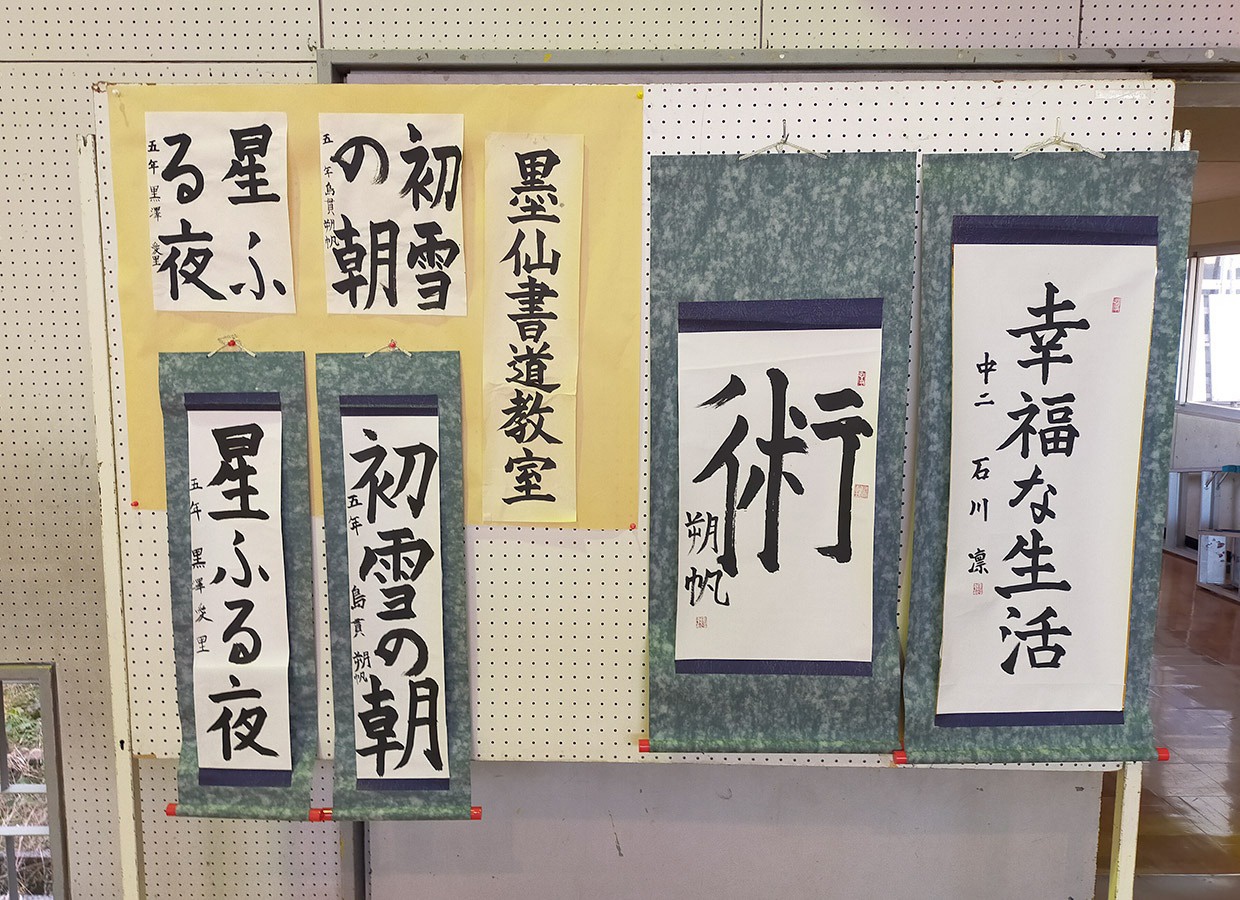 星ふ
る夜
五年 黒澤 愛里
初雪
の朝
五年 島貫 朔帆
墨仙書道教室
星ふる夜
五年 黒澤 愛里
初雪の朝
五年 島貫 朔帆
術
朔帆
幸福な生活
中二 石川 凛